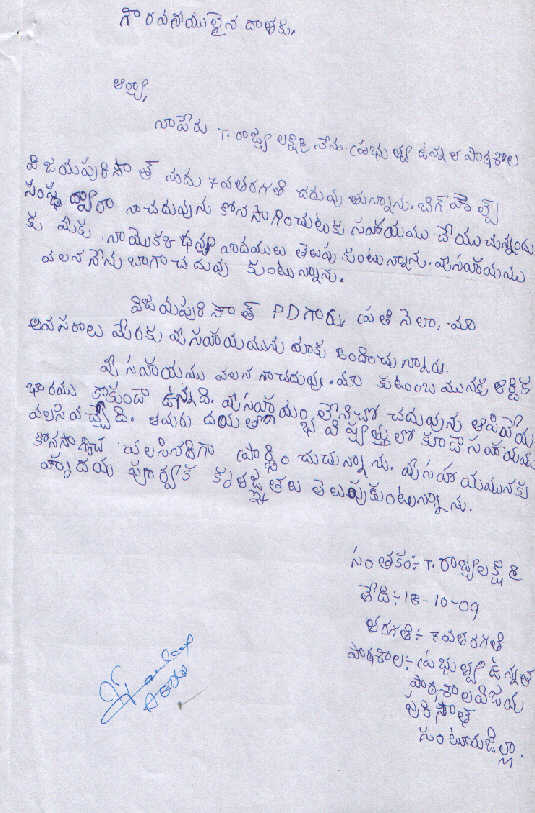 గౌరవనీయులైన దాతకు,
ఆర్యా,
నాపేరు T. రాజ్యలక్ష్మి నేను ప్రభుత్వ ఉన్నత పాఠశాల
విజయపురిసౌత్ నందు 7వతరగతి చదువుతున్నాను.
సంస్థ ద్వారా నాచదువును కొనసాగించుటకు సహాయము చేయుచున్నందు
కు మీకు నాయొక్క ధన్యవాదములు తెలుపుకుంటున్నాను. మీసహాయము
వలన నేను బాగా చదువుకుంటున్నాను.
విజయపురిసౌత్ PDగారు, ప్రతినెలా, మా
అవసరాలు మేరకు మీసహాయమును మాకు అందించుచున్నారు.
మీ సహాయము వలన నాచదువు మా కుటుంబమునకు ఆర్థిక
భారము కాకుండా ఉన్నది. మీసహాయం లేనిచో చదువును ఆపివేయ
వలసివచ్చేది. తమరు దయతో భవిష్యత్తులో కూడా సహాయము
కొనసాగించవలసినదిగా ప్రార్థించుచున్నాను. మీసహాయమునకు
హృదయ పూర్వక కృతజ్ఞతలు తెలుపుకుంటున్నాను.
సంతకం:- T. రాజ్యలక్ష్మి
తేది:- 18-10-09
తరగతి:- 7వతరగతి
పాఠశాల:- ప్రభుత్వ ఉన్నత
పాఠశాల విజయ
పురి సౌత్
గుంటూరుజిల్లా.